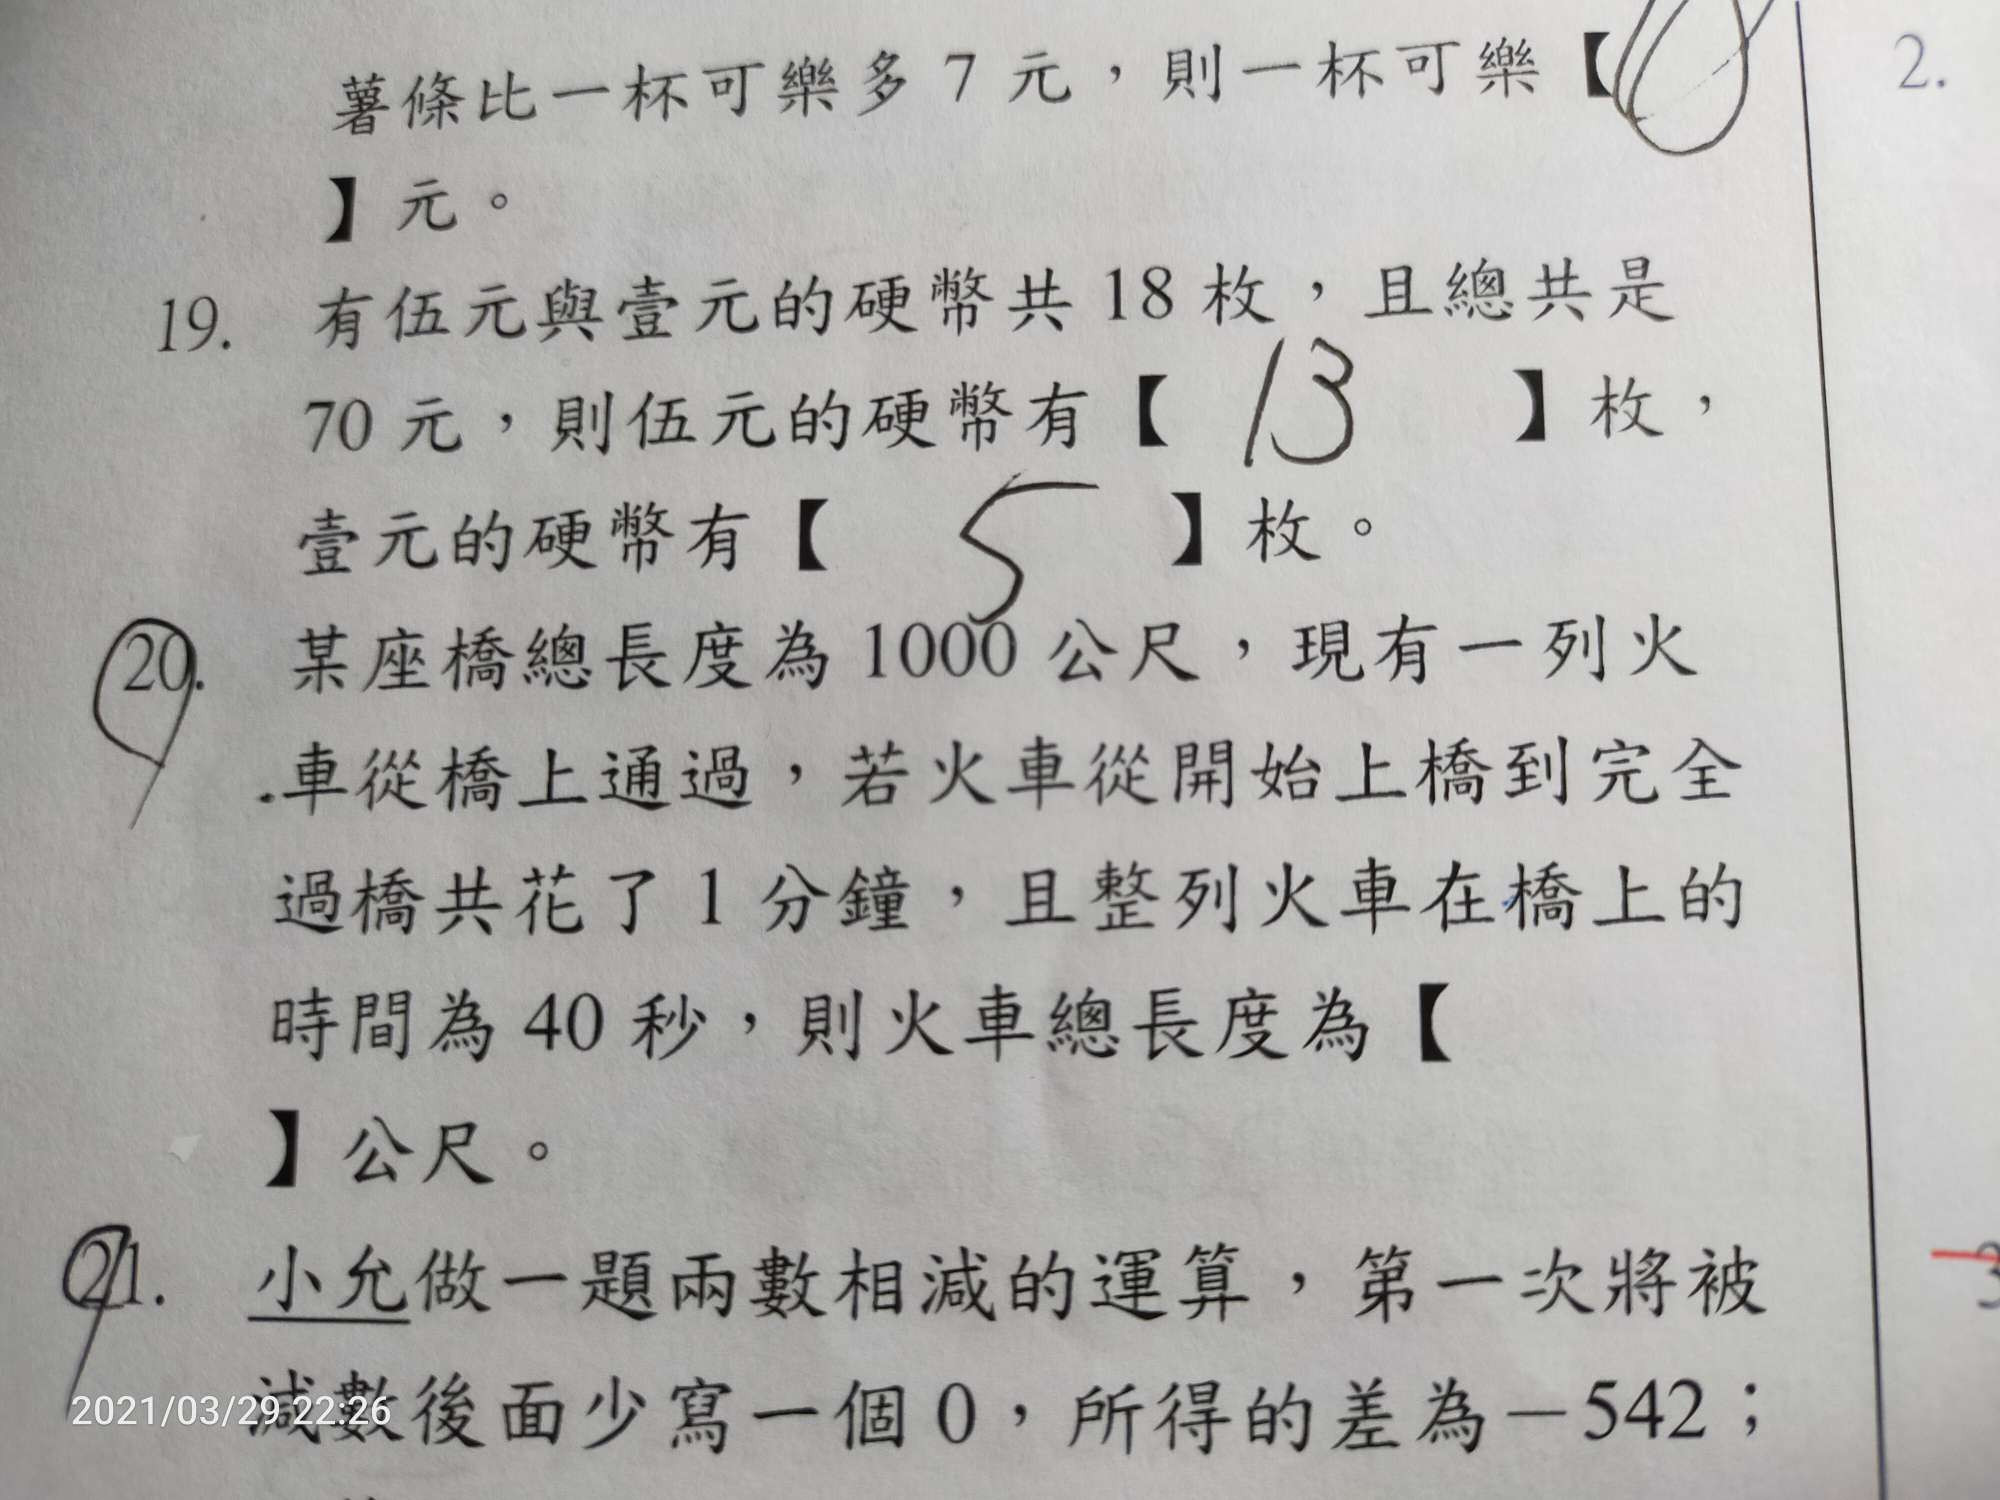 薯條比一杯可樂多 7 元，則一杯可樂【
】元。
2.
19. 有伍元與壹元的硬幣共 18 枚，且總共是
70 元，則伍元的硬幣有【 13 】枚，
壹元的硬幣有【 5 】枚。
20. 某座橋總長度為 1000 公尺，現有一列火
車從橋上通過，若火車從開始上橋到完全
過橋共花了 1 分鐘，且整列火車在橋上的
時間為 40 秒，則火車總長度為【
】公尺。
21. 小允做一題兩數相減的運算，第一次將被
減數後面少寫一個 0，所得的差為－542；
2021/03/29 22:26